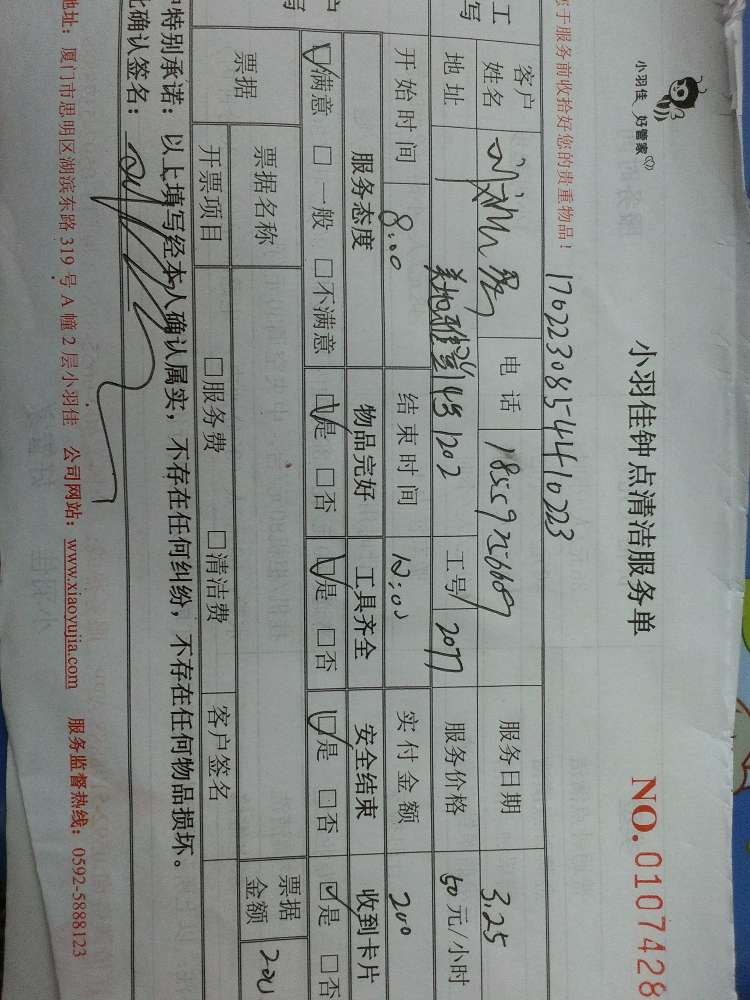 小羽佳 好管家
小羽佳钟点清洁服务单
NO.0107428
您于服务前收拾好您的贵重物品！
17622308544410223
工
写
客户
姓名
电话
服务日期 3.25
地址
1202
工号 2077
服务价格 50元/小时
开始时间 8:00 结束时间 12:00 实付金额 200
户
写
服务态度 物品完好 工具齐全 安全结束 收到卡片
☑满意 □一般 □不满意 ☑是 □否 ☑是 □否 ☑是 □否 ☑是 □否
票据
票据名称
票据
金额 200
开票项目 □服务费 □清洁费 客户签名
特别承诺：以上填写经本人确认属实，不存在任何纠纷，不存在任何物品损坏。
此确认签名：
地址：厦门市思明区湖滨东路 319 号 A 幢 2 层小羽佳 公司网站：www.xiaoyujia.com 服务监督热线：0592-5888123